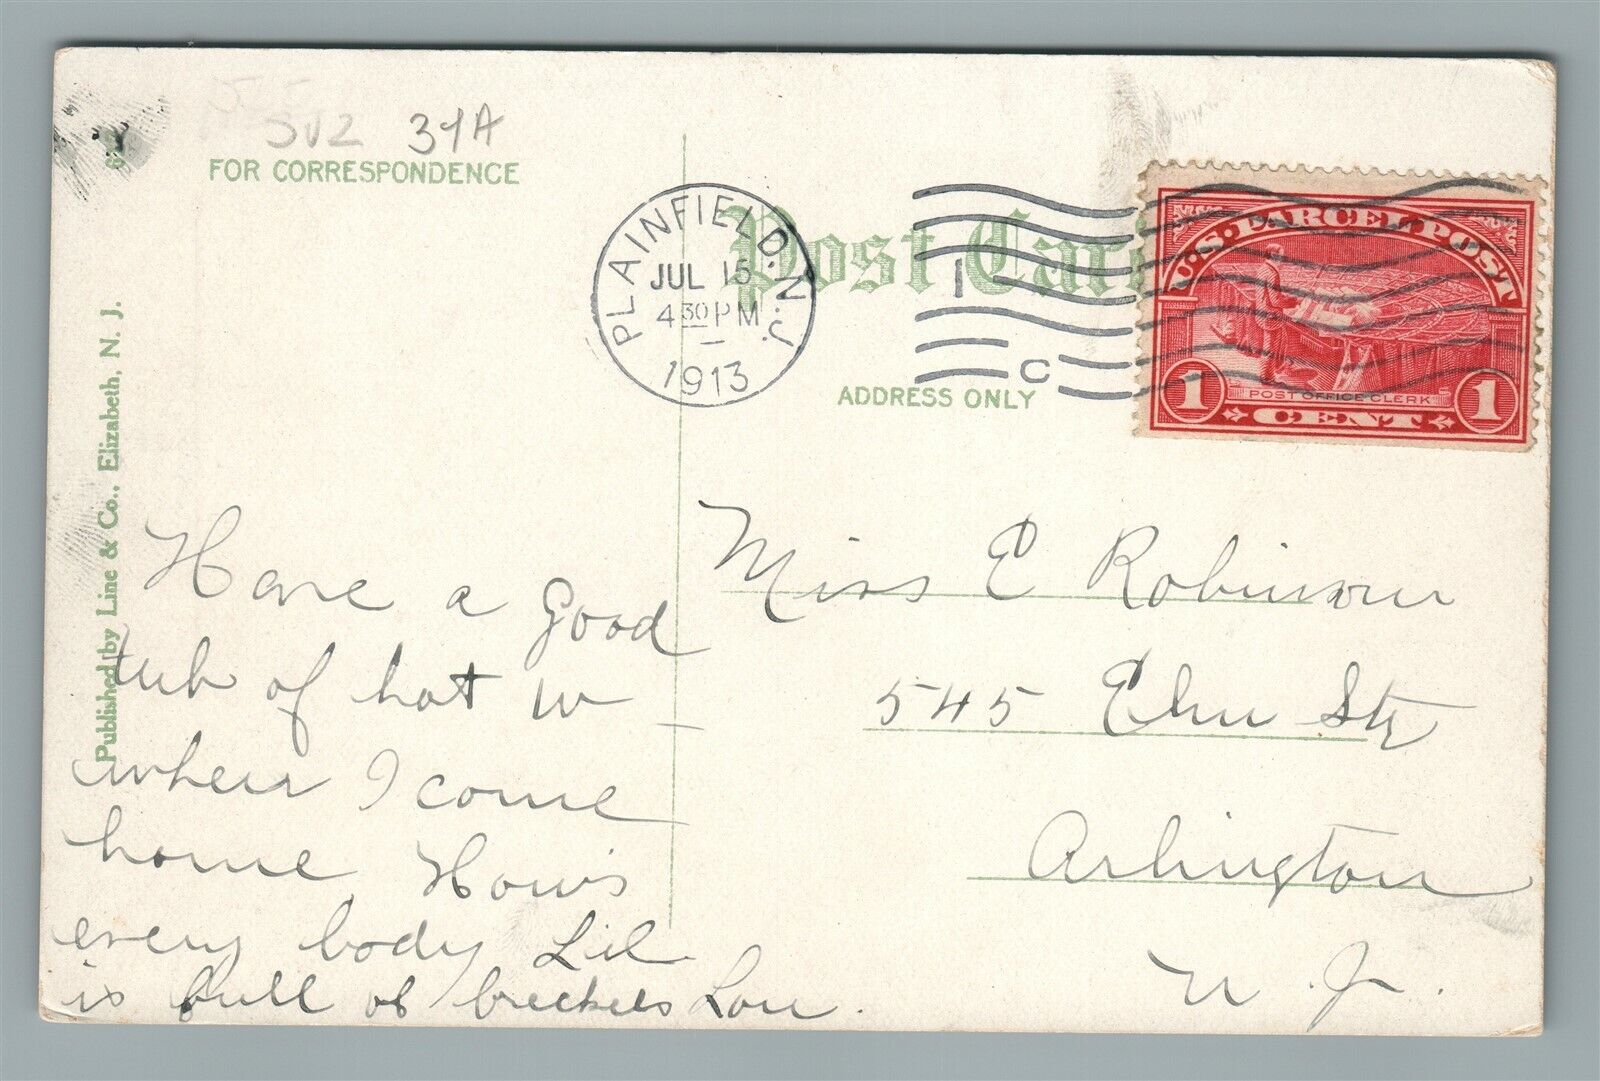 502 34A
FOR CORRESPONDENCE
Published by Line & Co., Elizabeth, N. J.
Post Car
ADDRESS ONLY
PLAINFIELD. N.J.
JUL 15
4 30 PM
1913
1 C
U.S. PARCEL POST
POST OFFICE CLERK
1 CENT 1
Have a good
tub of hot w
when I come
home How's
every body Lil
is full of Lou.
Miss E Robinson
545 Elm Str
Arlington
N. J.